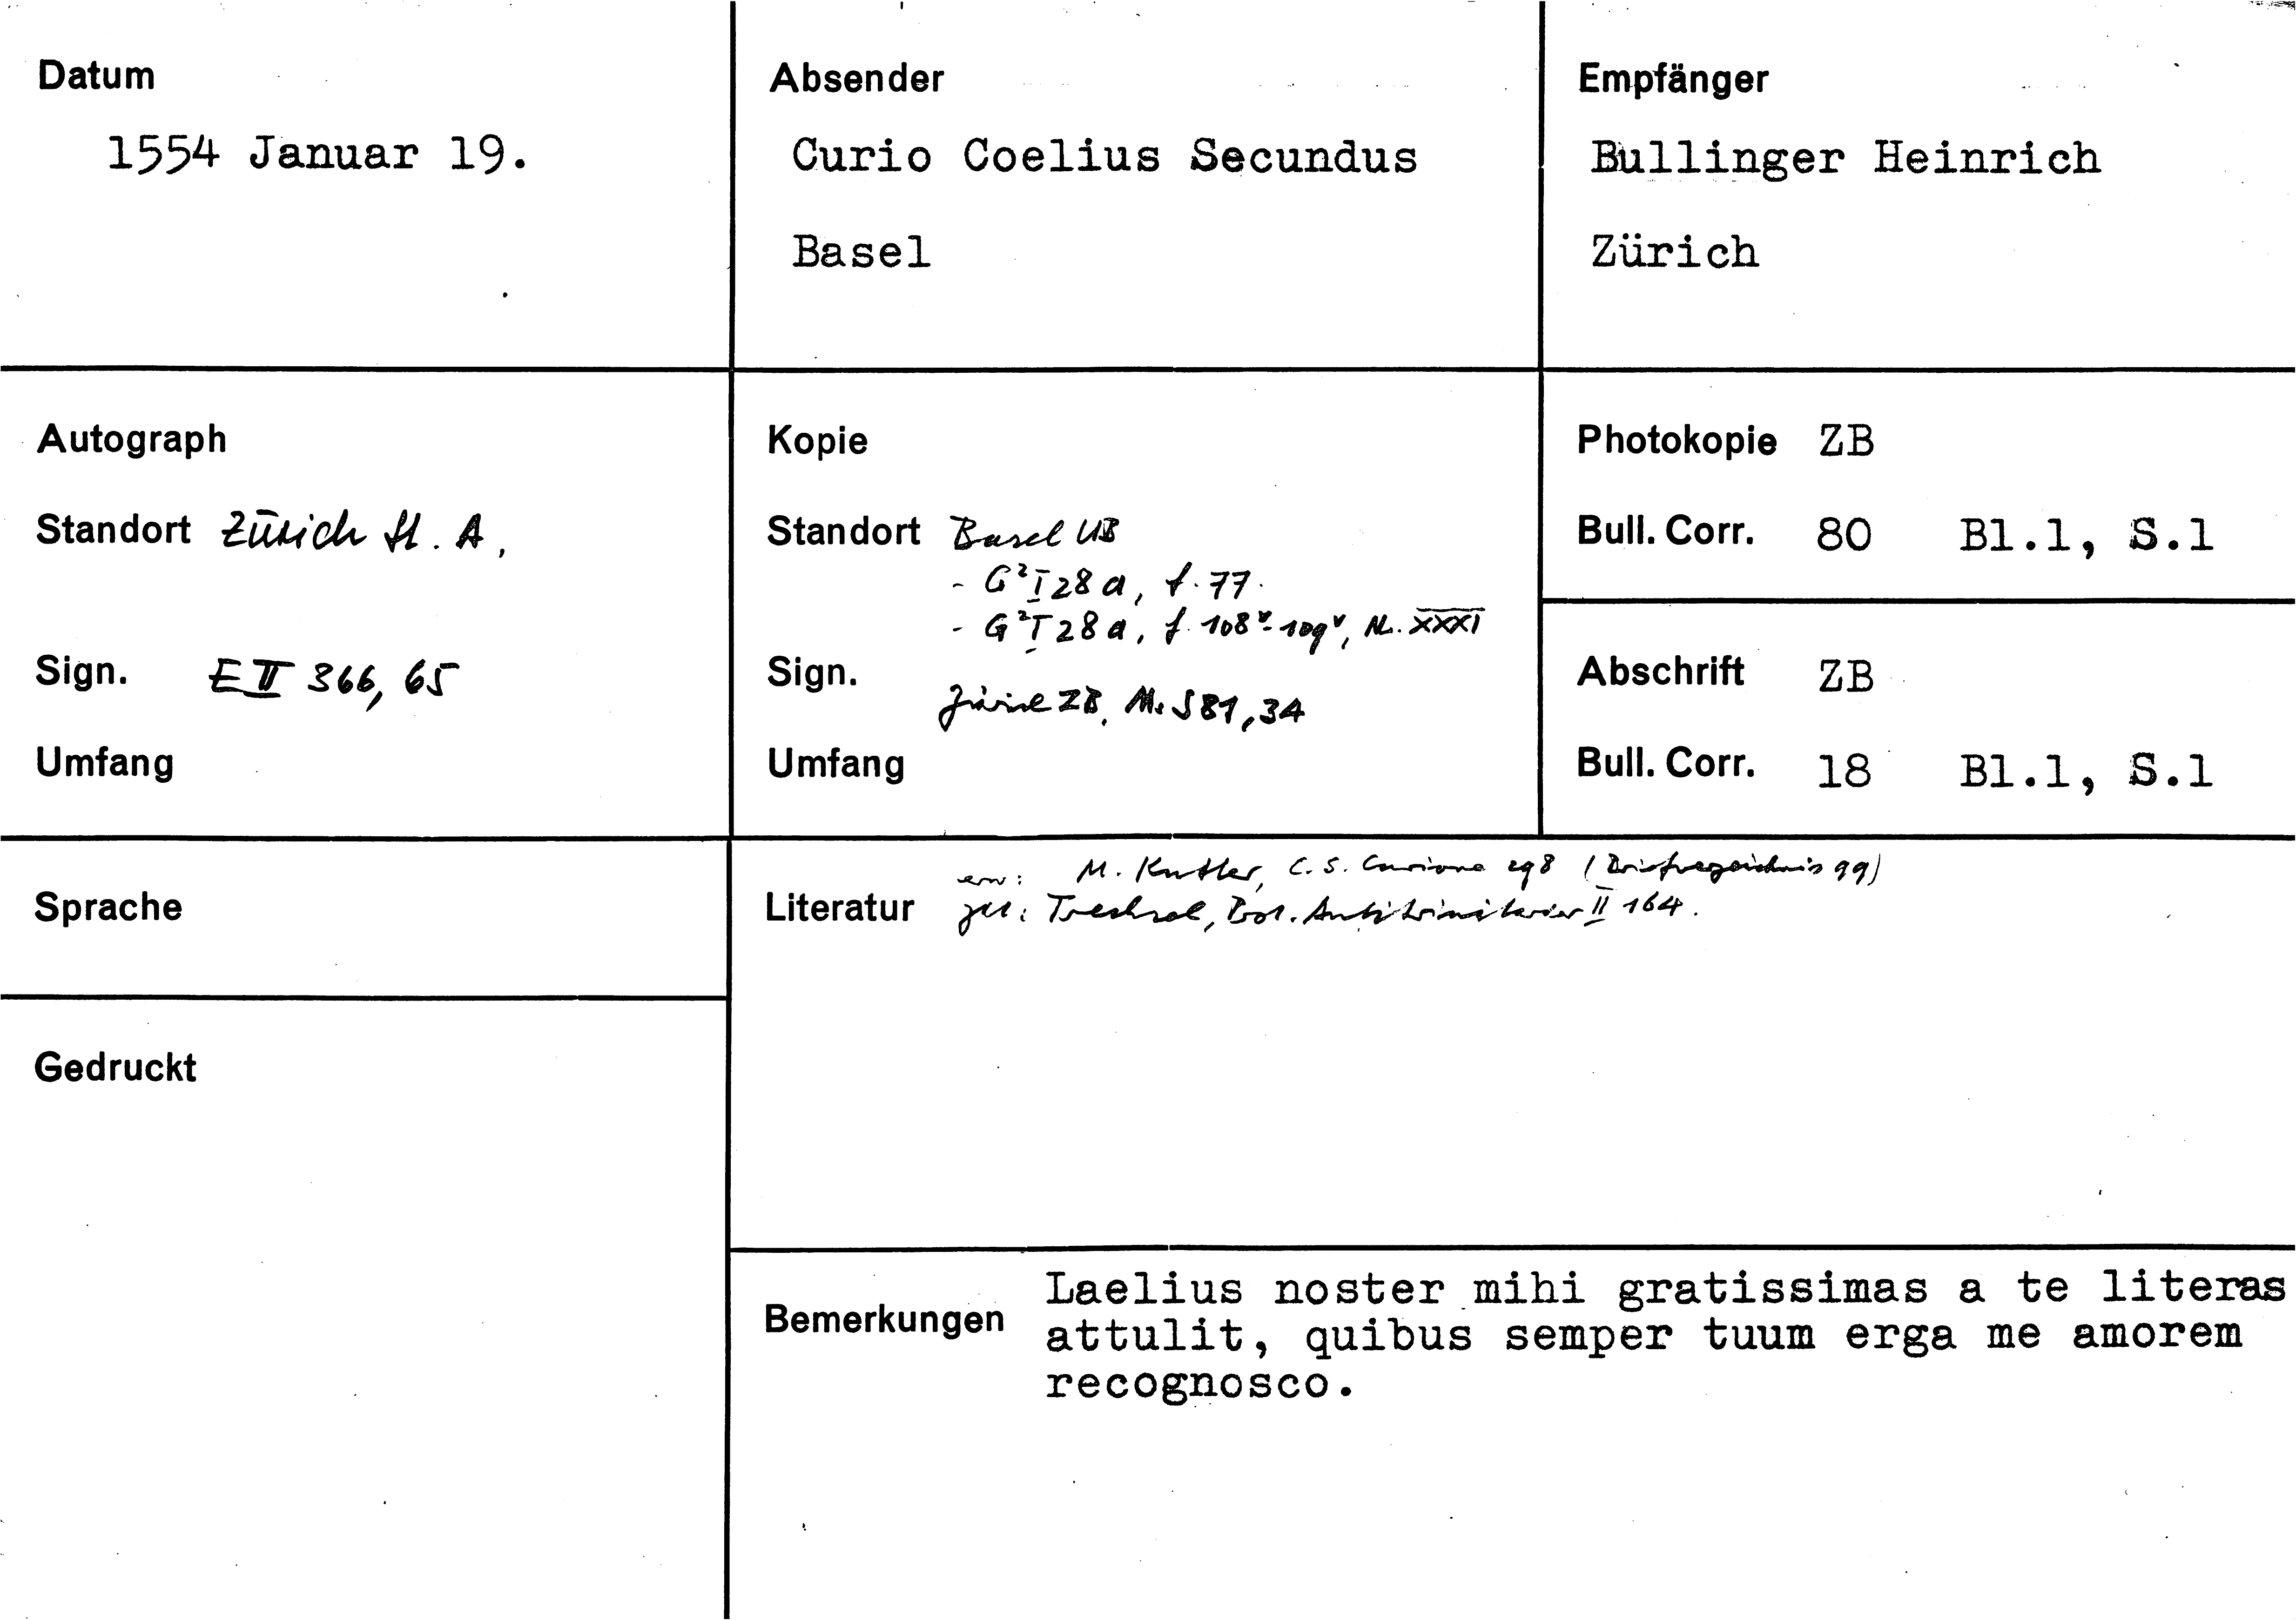 Datum
1554 Januar 19.
Absender
Curio Coelius Secundus
Basel
Empfänger
Bullinger Heinrich
Zürich
Autograph
Standort Zürich St. A.
Sign. E II 366, 65
Umfang
Kopie
Standort Basel UB
- G² I 28 a, f. 77.
- G² I 28 a, f. 108v-109v, Nr. XXXI
Sign.
Zürich ZB, Ms S 81, 34
Umfang
Photokopie ZB
Bull. Corr. 80 Bl.1, S.1
Abschrift ZB
Bull. Corr. 18 Bl.1, S.1
Sprache
Gedruckt
erw: M. Kutter, C. S. Curione 298 (Briefverzeichnis 99)
Literatur zit: Trechsel, Prot. Antitrinitarier II 164.
Bemerkungen
Laelius noster mihi gratissimas a te literas
attulit, quibus semper tuum erga me amorem
recognosco.